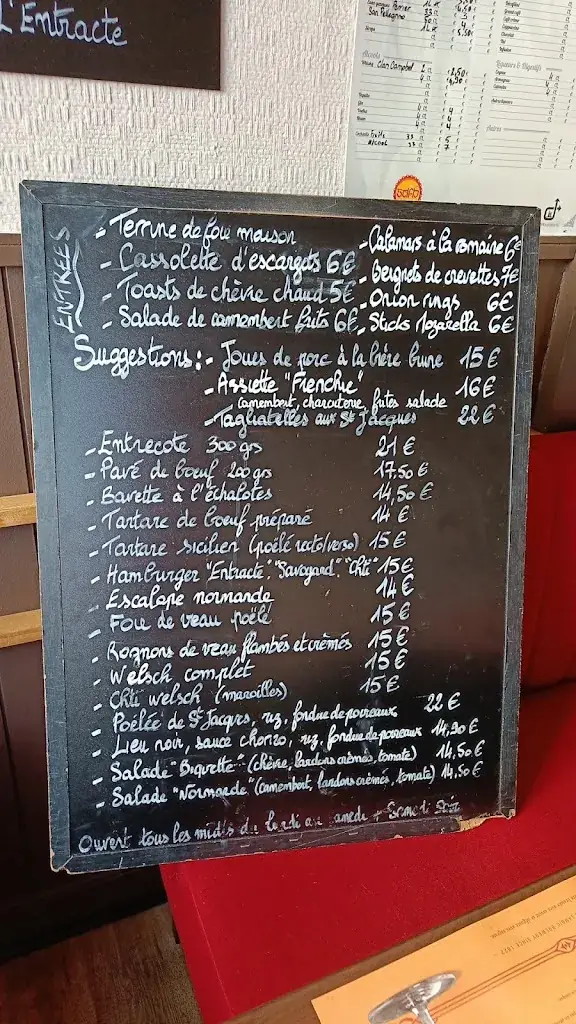 L'Entracte
San Pellegrino
Alcools
Clan Campbell
Liqueurs & Digestifs
ENTRÉES
- Terrine de foie maison
- Cassolette d'escargots 6€
- Toasts de chèvre chaud 5€
- Salade de camembert frits 6€
- Calamars à la romaine 6€
- Beignets de crevettes 7€
- Onion rings 6€
- Sticks Mozarella 6€
Suggestions: - Joues de porc à la bière brune 15€
- Assiette "Frenchie" 16€
(camembert, charcuterie, frites salade
- Tagliatelles aux St Jacques 22€
- Entrecote 300grs 21€
- Pavé de boeuf 200grs 17,50€
- Bavette à l'échalotes 14,50€
- Tartare de boeuf préparé 14€
- Tartare sicilien (poêlé recto/verso) 15€
- Hamburger "Entracte". "Savoyard". "Chti" 15€
- Escalope normande 14€
- Foie de veau poêlé 15€
- Rognons de veau flambés et crémés 15€
- Welsch complet 15€
- Chti welsch (maroilles) 15€
- Poêlée de St Jacques, riz, fondue de poireaux 22€
- Lieu noir, sauce chorizo, riz, fondue de poireaux 14,90€
- Salade "Biquette" (chèvre, lardons crémés, tomate) 14,50€
- Salade "Normande" (camembert, lardons crémés, tomate) 14,50€
Ouvert tous les midis du lundi au samedi + Samedi soir